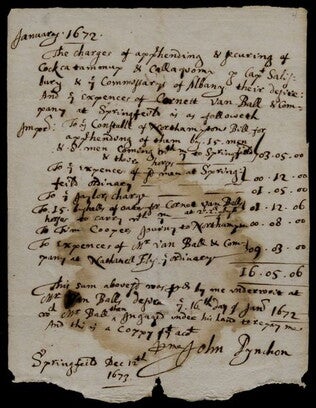 January. 1672.
The charges of apphending & securing of
Cockatamaug & Callagoom p Cap.t Salis
bury & ye Commissary of Albany their desire:
And ye expences of Cornett Van Ball & Com
pany at Springfeild is as followeth
Impr: To ye Constable of Northamptons Bill for
apphendeing of them by 15 men
& men coming with ym to Springfeild
& those horses 03.05.00
To ye expence of men at Spring
feild ordinary 00.12.00
To ye Jaylors charge 01.05.00
To 15 of oates for Cornet van Balls
horses to carry with ym
To Tim Cooper Jurny to Northampton 00.08.00
To expences of Mr van Ball & Com
pany at Nathanll Elys ye ordinary 09.03.00
16.05.06
This sum abovesd was pd by me underwrit at
Mr van Balls desire ye 16th day of Janry 1672
and Mr Ball then Ingaged under his hand to repay me
And this is a Coppy of ye act
p me John Pynchon
Springfeild Decr 12th
1673.